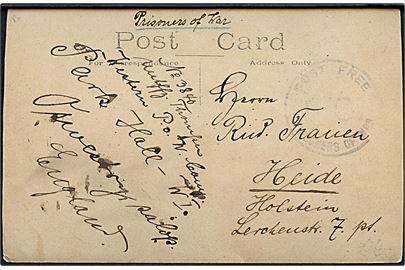 Prisoners of War
Post Card
For Correspondence
Address Only
POST FREE
PRISONERS OF WAR
Herrn
Rud. Frauen
Heide
Holstein
Lerchenstr. 7. pt.
Western
P. o. W. Camp
Park Hall
Oswestry, Salop.
England.